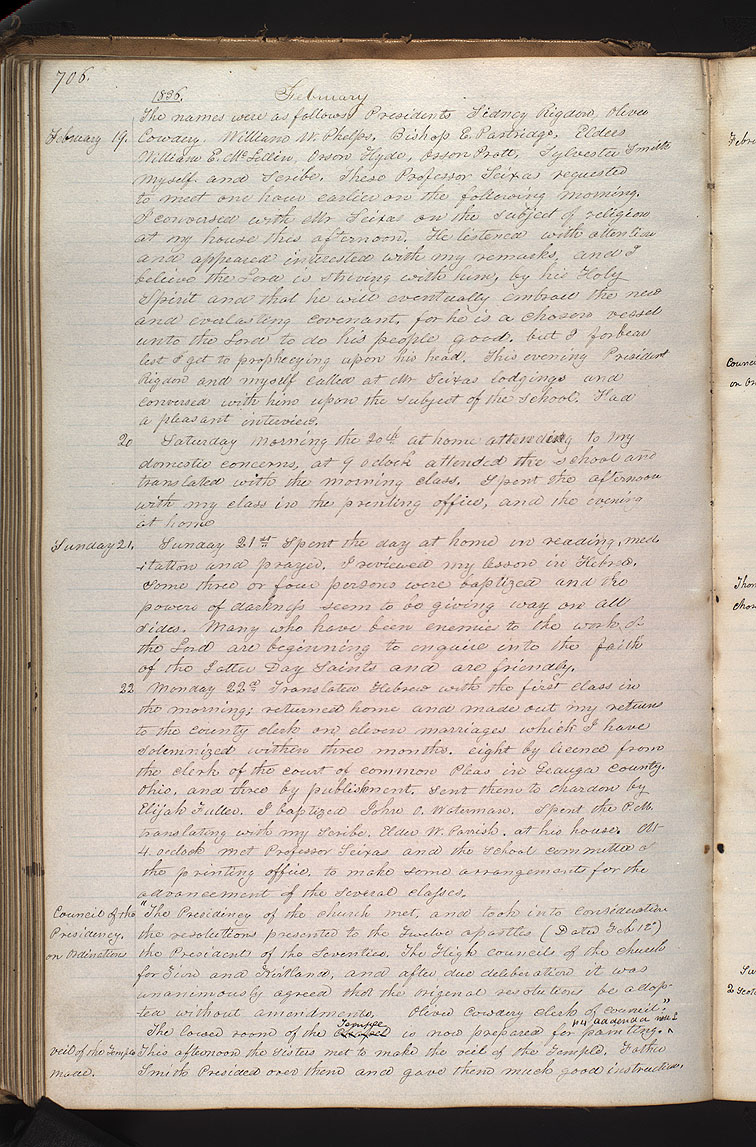 706.
1836. February
The names were as follows Presidents Sidney Rigdon, Oliver
February 19. Cowdery, William W. Phelps, Bishop E. Partridge, Elders
William E. McLellin, Orson Hyde, Orson Pratt, Sylvester Smith
myself and Scribe. These Professor Seixas requested
to meet one hour earlier on the following morning.
I conversed with Mr Seixas on the subject of religion
at my house this afternoon. He listened with attention
and appeared interested with my remarks, and I
believe the Lord is striving with him, by his Holy
Spirit and that he will eventually embrace the new
and everlasting covenant, for he is a chosen vessel
unto the Lord to do his people good. but I forbear
lest I get to prophecying upon his head. This evening President
Rigdon and myself called at Mr Seixas lodgings and
conversed with him upon the subject of the school. Had
a pleasant interview.
20 Saturday morning the 20th at home attending to my
domestic concerns, at 9 oclock attended the school and
translated with the morning class. Spent the afternoon
with my class in the printing office, and the evening
at home
Sunday 21. Sunday 21st Spent the day at home in reading, med-
-itation and prayer. I reviewed my lesson in Hebrew.
Some three or four persons were baptized and the
powers of darkness seem to be giving way on all
sides. Many who have been enemies to the work of
the Lord are beginning to enquire into the faith
of the Latter Day Saints and are friendly.
22 Monday 22nd Translated Hebrew with the first class in
the morning; returned home and made out my returns
to the county clerk on eleven marriages which I have
solemnized within three months. eight by licence from
the clerk of the court of common Pleas in Geauga county.
Ohio, and three by publishment. Sent them to Chardon by
Elijah Fuller. I baptized John O. Waterman. Spent the P.M.
translating with my Scribe, Elder W. Parrish, at his house. At
4 oclock met Professor Seixas and the School committee at
the printing office, to make some arrangements for the
advancement of the several classes.
Council of the "The Presidency of the church met, and took into consideration
Presidency. the resolutions presented to the Twelve apostles (Dated Feb 12th)
on Ordinations the Presidents of the Seventies. The High councils of the church
for Zion and Kirtland, and after due deliberation it was
unanimously agreed that the original resolutions be adop-
-ted without amendments. Oliver Cowdery clerk of council."
The lower room of the Chapel Temple is now prepared for painting. "4 addenda note 2
veil of the Temple This afternoon the Sisters met to make the veil of the Temple. Father
made. Smith Presided over them and gave them much good instruction.
Febru
Counc
on Or
Thom